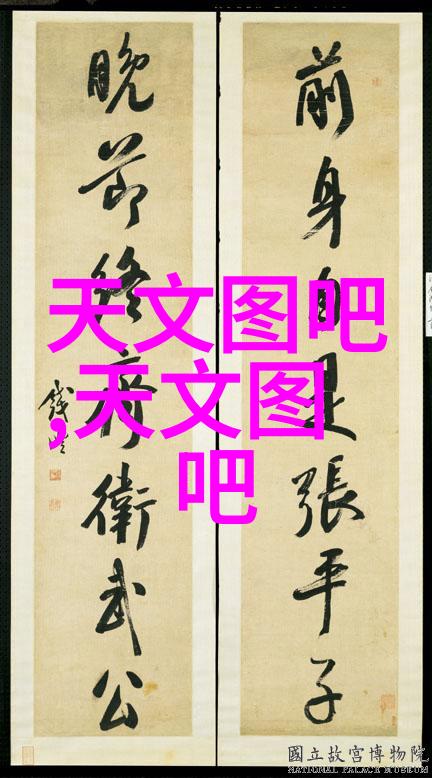 前身自是張平子
晚節終齊衛武公
錢灃
天文图吧
,天文图
吧
國立故宮博物院
NATIONAL PALACE MUSEUM